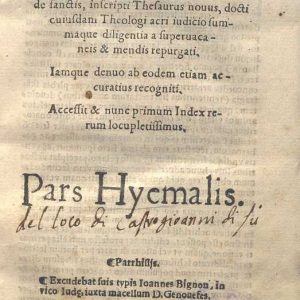 de sanctis, inscripti Thesaurus nouus, docti
cuiusdam Theologi acri iudicio sum-
maque diligentia a superuaca-
neis & mendis repurgati.
Iamque denuo ab eodem etiam ac-
curatius recogniti.
Accessit & nunc primum Index re-
rum locupletissimus.
Pars Hyemalis.
del loco di Castrogioanni di
¶ Parrhisijs.
¶ Excudebat suis typis Ioannes Bignon, in
vico Iudę, iuxta macellum D. Genouefes,